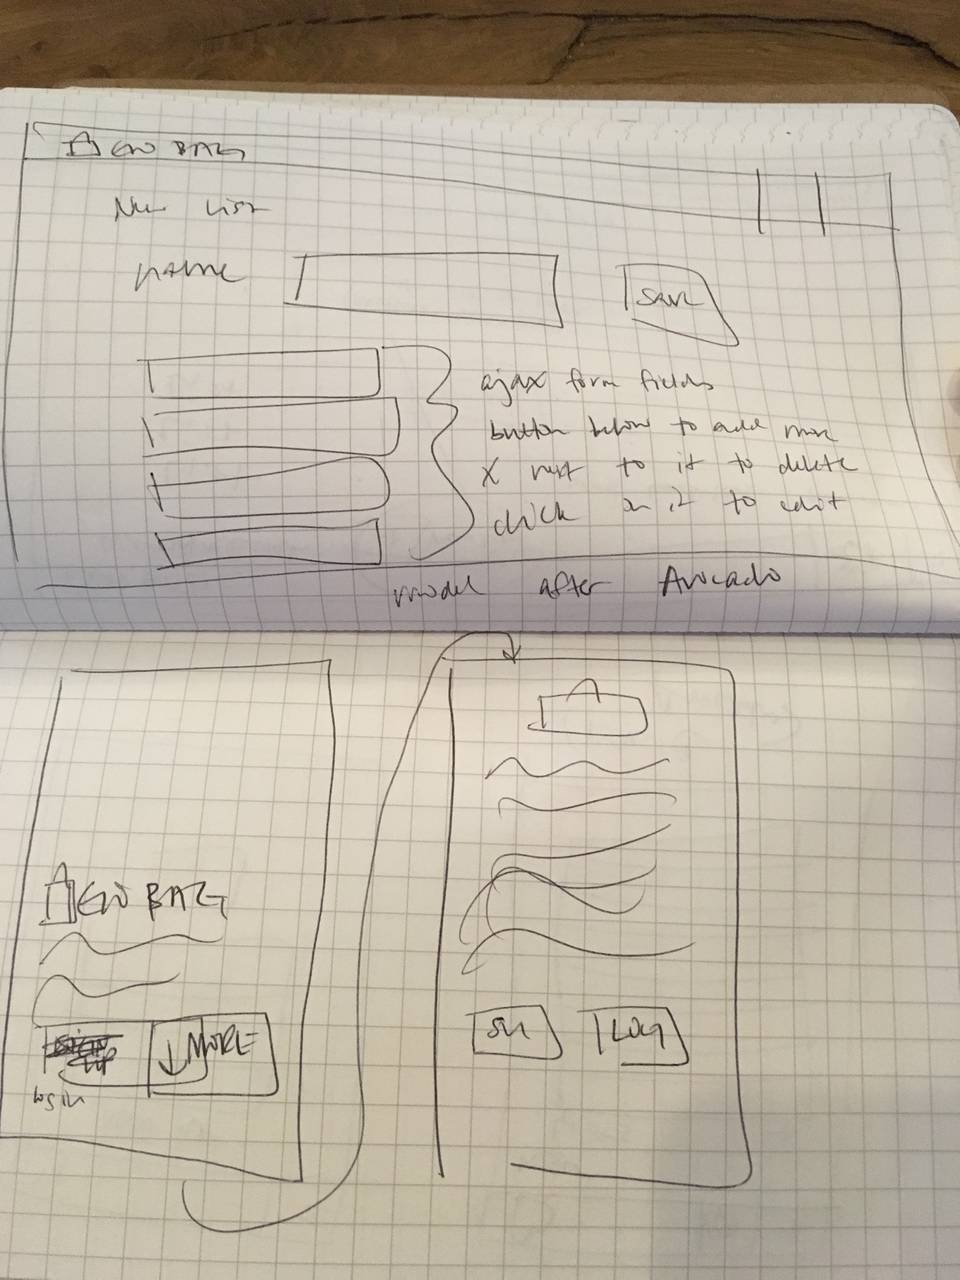 GO BAG
New List
name
SAVE
ajax form fields
button below to add more
X next to it to delete
click on it to edit
model after Avocado
GO BAG
MORE
login
SU
LOG